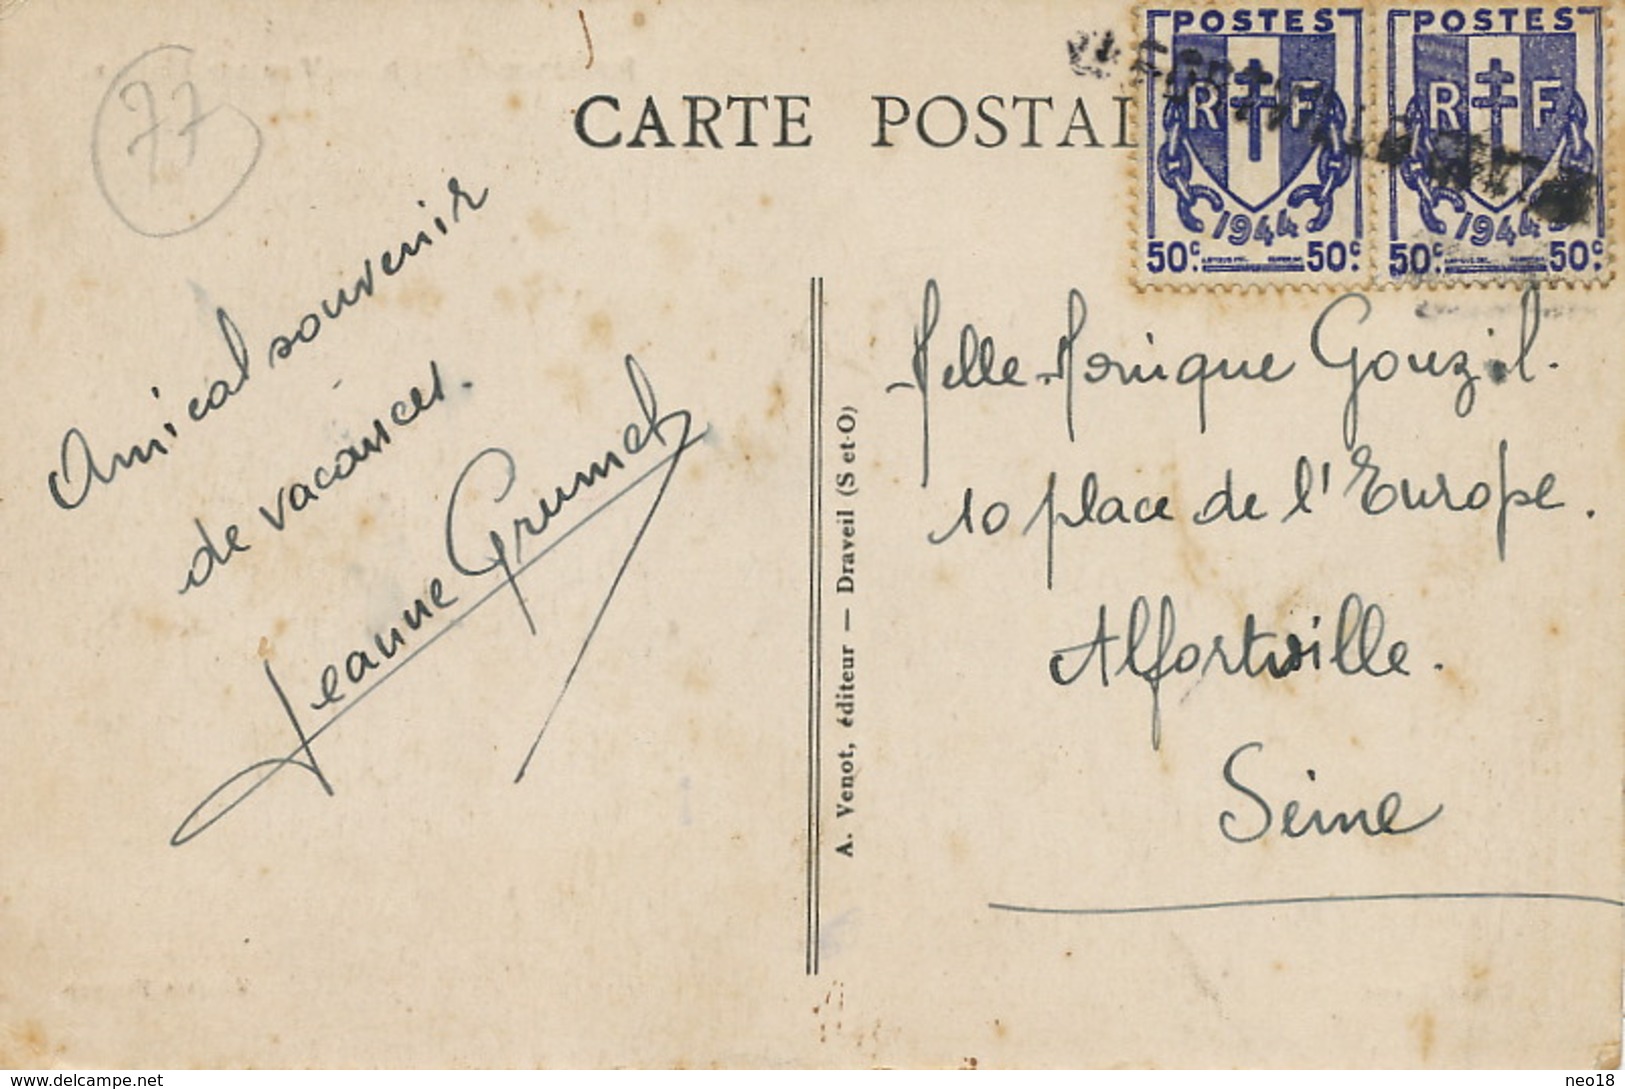 77
CARTE POSTAL
POSTES
RF
1944
50c. 50c.
POSTES
RF
1944
50c. 50c.
Amical souvenir
de vacances.
Jeanne
Melle Monique Gouzil.
10 place de l'Europe.
Alfortville.
Seine
A. Venot, éditeur — Draveil (S et-O)
delcampe.net
neo18